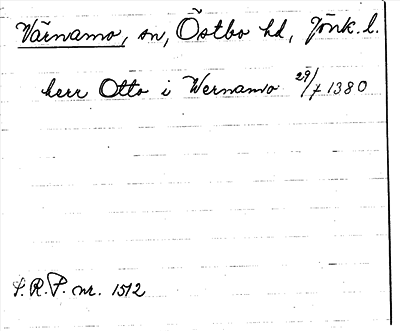 Värnamo, sn, Östbo hd, Jönk. l.
herr Otto i Wernamo 29/7 1380
S.R.P. nr. 1512